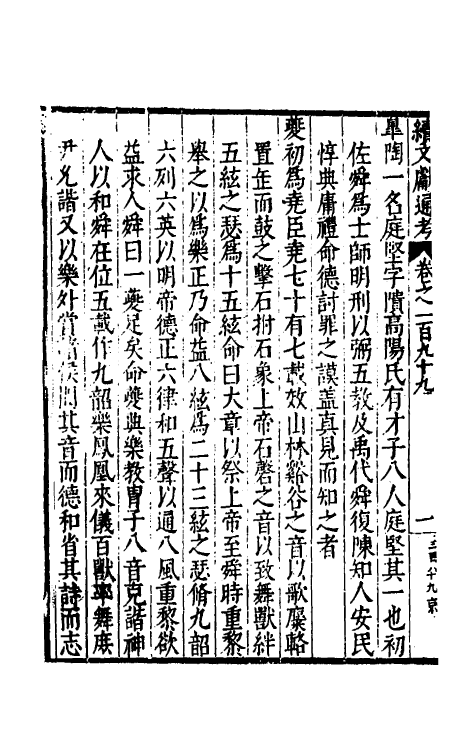 續文獻通考 卷之一百九十九 一
皐陶一名庭堅字隤高陽氏有才子八人庭堅其一也初
佐舜爲士師明刑以弼五教及禹代舜復陳知人安民
惇典庸禮命德討罪之謨盖真見而知之者
夔初爲堯臣堯七十有七載效山林谿谷之音以歌麋輅
置缶而鼓之擊石拊石象上帝石磬之音以致舞獸絆
五絃之瑟爲十五絃命曰大章以祭上帝至舜時重黎
舉之以爲樂正乃命益八絃爲二十三絃之瑟脩九韶
六列六英以明帝德正六律和五聲以通八風重黎欲
益求人舜曰一夔足矣命夔典樂教胄子八音克諧神
人以和舜在位五載作九韶樂鳳凰來儀百獸率舞庶
尹允諧又以樂外賞諸侯聞其音而德和省其詩而志